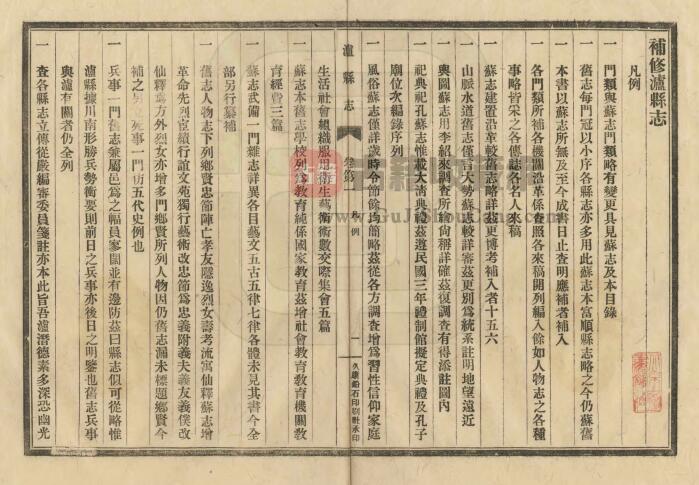 補修瀘縣志
凡例
一 門類與蘇志門類略有變更具見蘇志及本目錄
一 舊志每門冠以小序各縣志亦多用此蘇志本富順縣志略之今仍蘇舊
一 本書以蘇志所無及至今成書日止查明應補者補入
一 各門類所補各機關沿革係查照各來稿開列編入餘如人物志之各種
事略皆采之各傳誌各名人來稿
一 蘇志建置沿革較舊志略詳茲更博考補入者十五六
一 山脈水道舊志僅言大勢蘇志較詳審茲更別爲統系註明地望遠近
一 輿圖蘇志用李紹來調查所繪尙稱詳確茲復調查有得添註圖內
一 祀典祀孔蘇志惟載大淸典禮茲遵民國三年禮制館擬定典禮及孔子
廟位次編錄序列
一 風俗蘇志僅詳歲時令節餘均簡略茲從各方調查增爲習性信仰家庭
瀘縣志
凡例
一
久康鉛石印刷社承印
生活社會組織服忌衛生藝術術數交際集會五篇
一 蘇志本舊志學校列爲教育純係國家教育茲增社會教育教育機關教
育經營三篇
一 蘇志武備一門雜志詳異各目藝文五古五律七律各體未見其書今全
部另行纂補
一 舊志人物志下列鄉賢忠節陣亡孝友隱逸烈女壽考流寓仙釋蘇志增
革命先烈宦績行誼文苑獨行藝術改忠節爲忠義附義夫義友義僕改
仙釋爲方外烈女亦增多門鄉賢所列人物因仍舊志漏未標題鄉賢今
一 兵事一門舊志兼屬邑爲之幅員寥闊並有邊防茲曰縣志似可從略惟
瀘縣據川南形勝兵勢衝要則前日之兵事亦後日之明鑒也舊志兵事
與瀘有關者仍全列
一 查各縣志立傳從嚴編審委員箋註亦本此旨吾瀘潛德素多深恐幽光